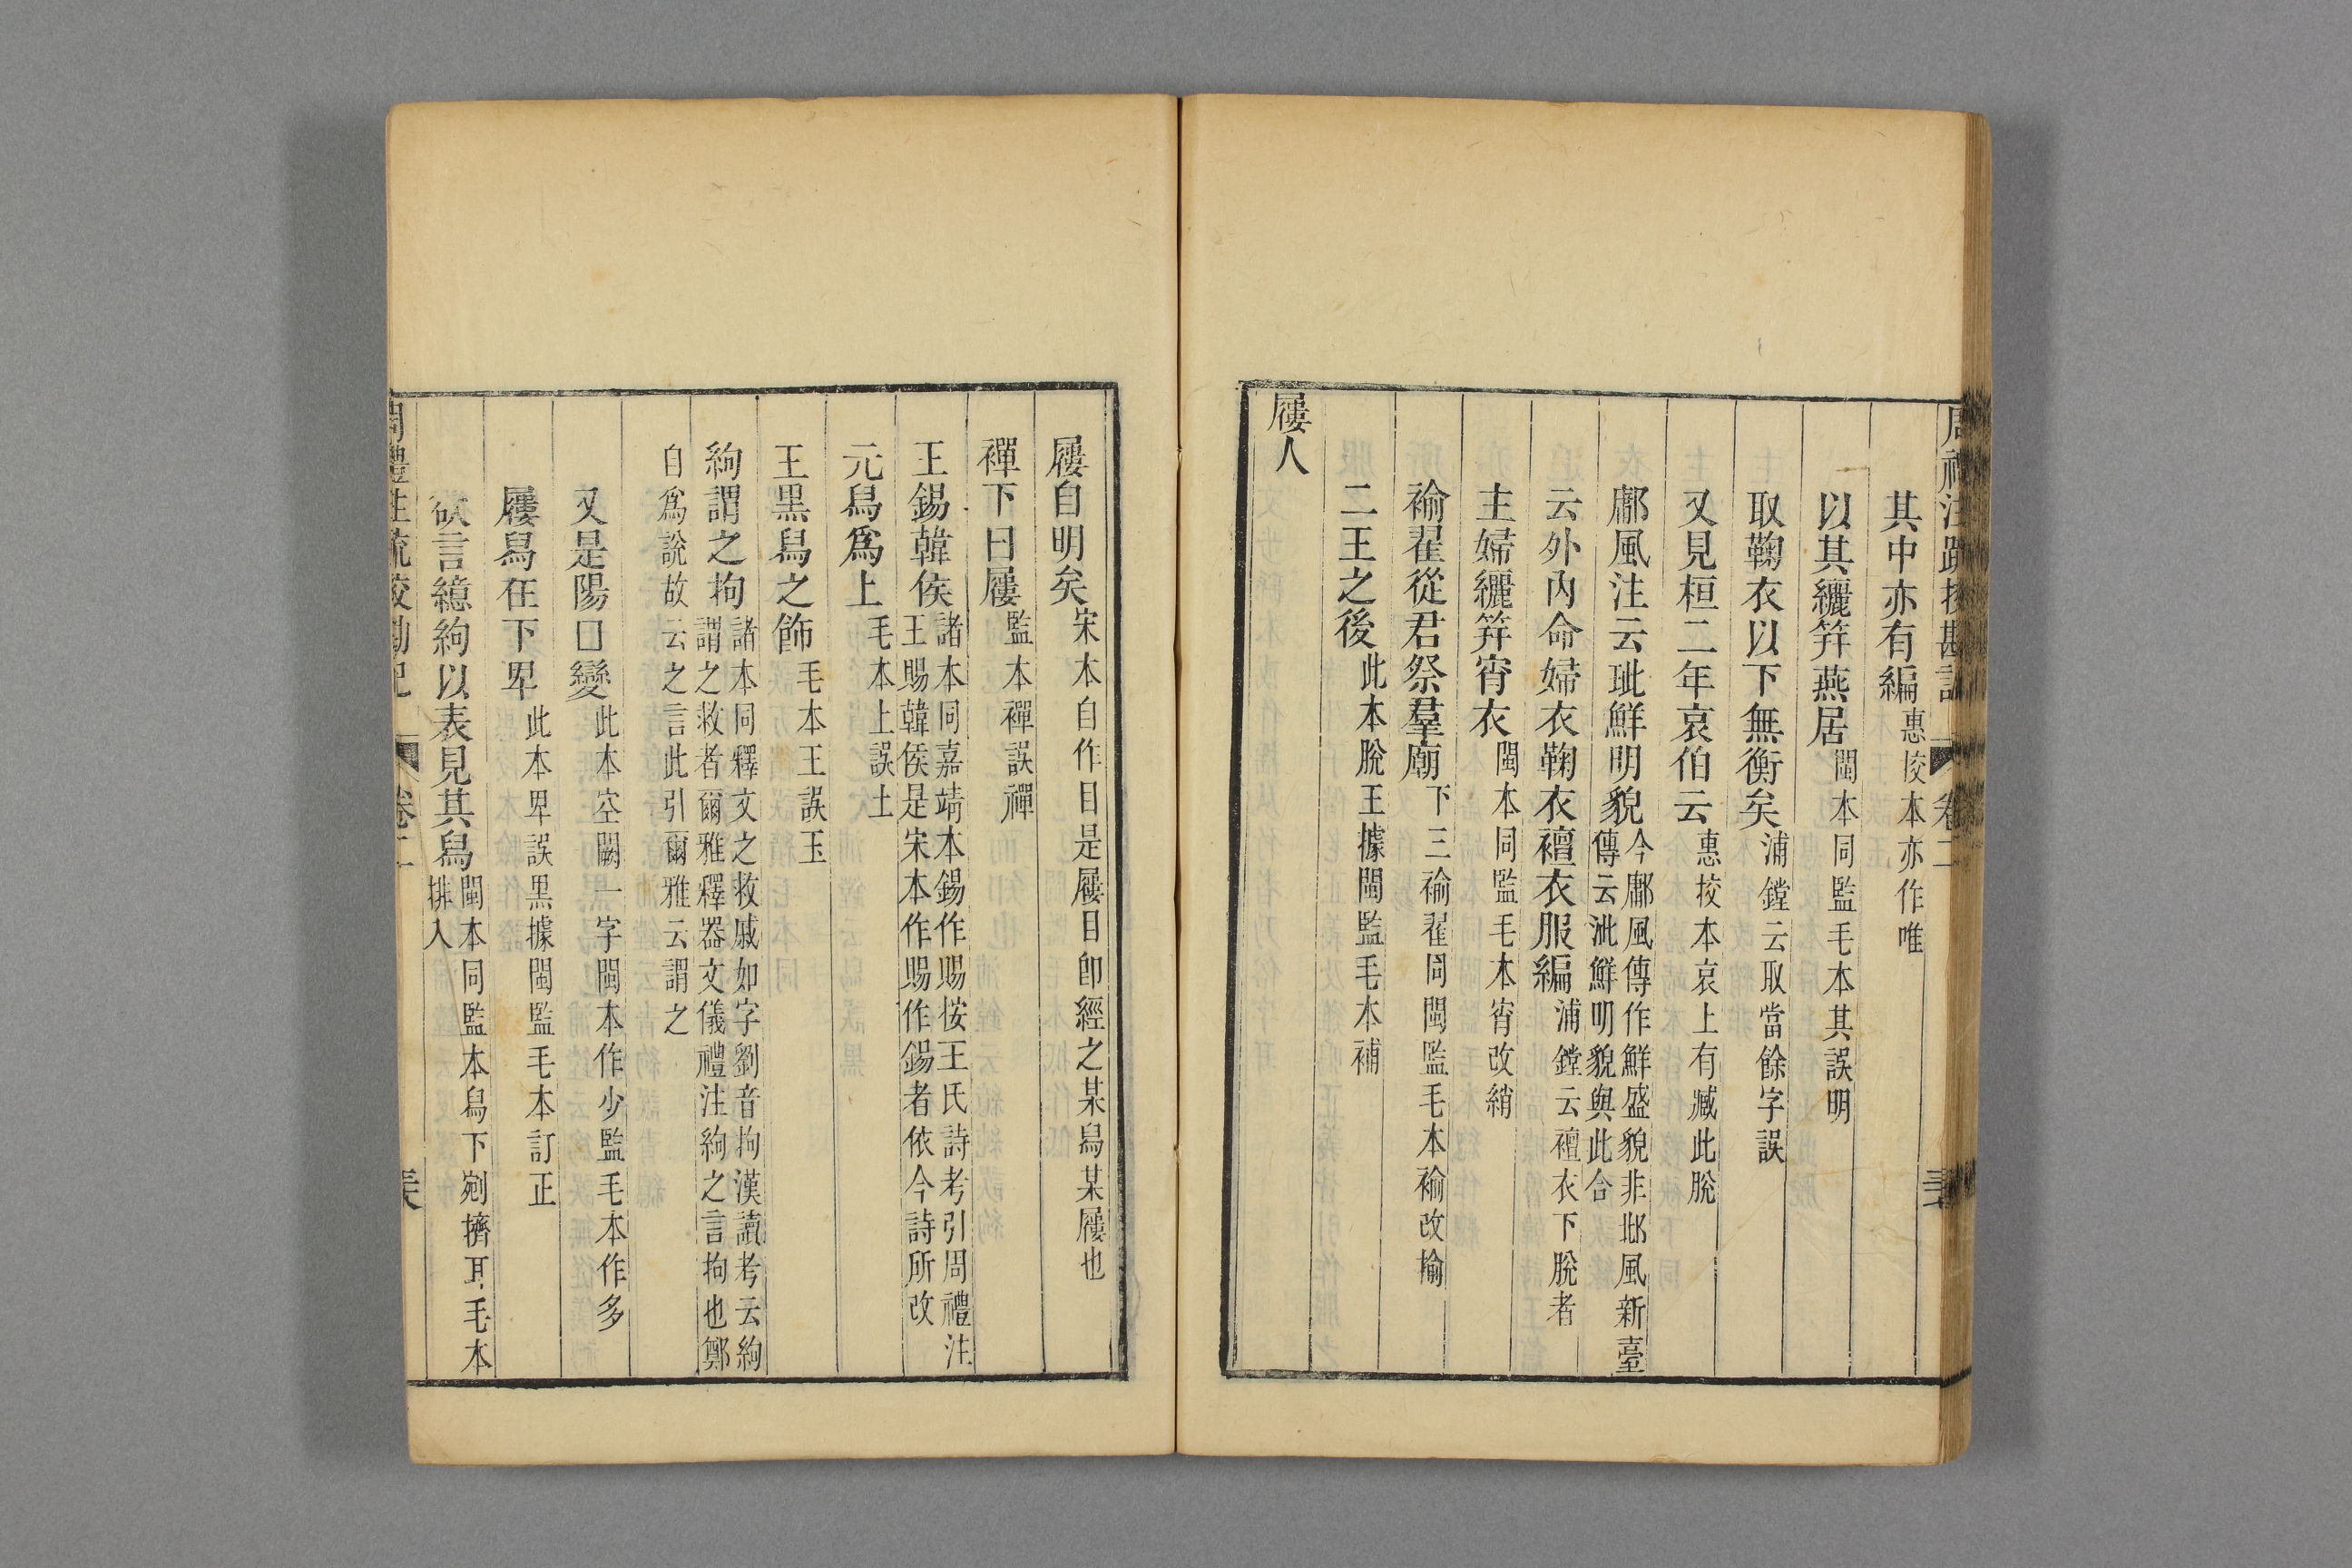 其中亦有編惠挍本亦作唯
以其纚筓燕居閩本同監毛本其誤明
取鞠衣以下無衡矣浦鏜云取當餘字誤
又見桓二年哀伯云惠挍本哀上有臧此脫
鄘風注云玼鮮明貌今鄘風傳作鮮盛貌非邶風新臺傳云泚鮮明貌與此合
云外內命婦衣鞠衣襢衣服編浦鏜云襢衣下脫者
主婦纚筓宵衣閩本同監毛本宵改綃
褕翟從君祭羣廟下三褕翟同閩監毛本褕改揄
二王之後此本脫王據閩監毛本補
屨人
屨自明矣宋本自作目是屨目卽經之某舄某屨也
襌下曰屨監本襌誤禪
王錫韓侯諸本同嘉靖本錫作賜按王氏詩考引周禮注王賜韓侯是宋本作賜作錫者依今詩所改
元舄爲上毛本上誤土
王黑舄之飾毛本王誤玉
絇謂之拘諸本同釋文之救戚如字劉音拘漢讀考云絇謂之救者爾雅釋器文儀禮注絇之言拘也鄭
自爲說故云之言此引爾雅云謂之
又是陽□變此本空闕一字閩本作少監毛本作多
屨舄在下卑此本卑誤黑據閩監毛本訂正
欲言繶絇以表見其舄閩本同監本舄下剜擠耳毛本排入
周禮注疏校勘記
卷二